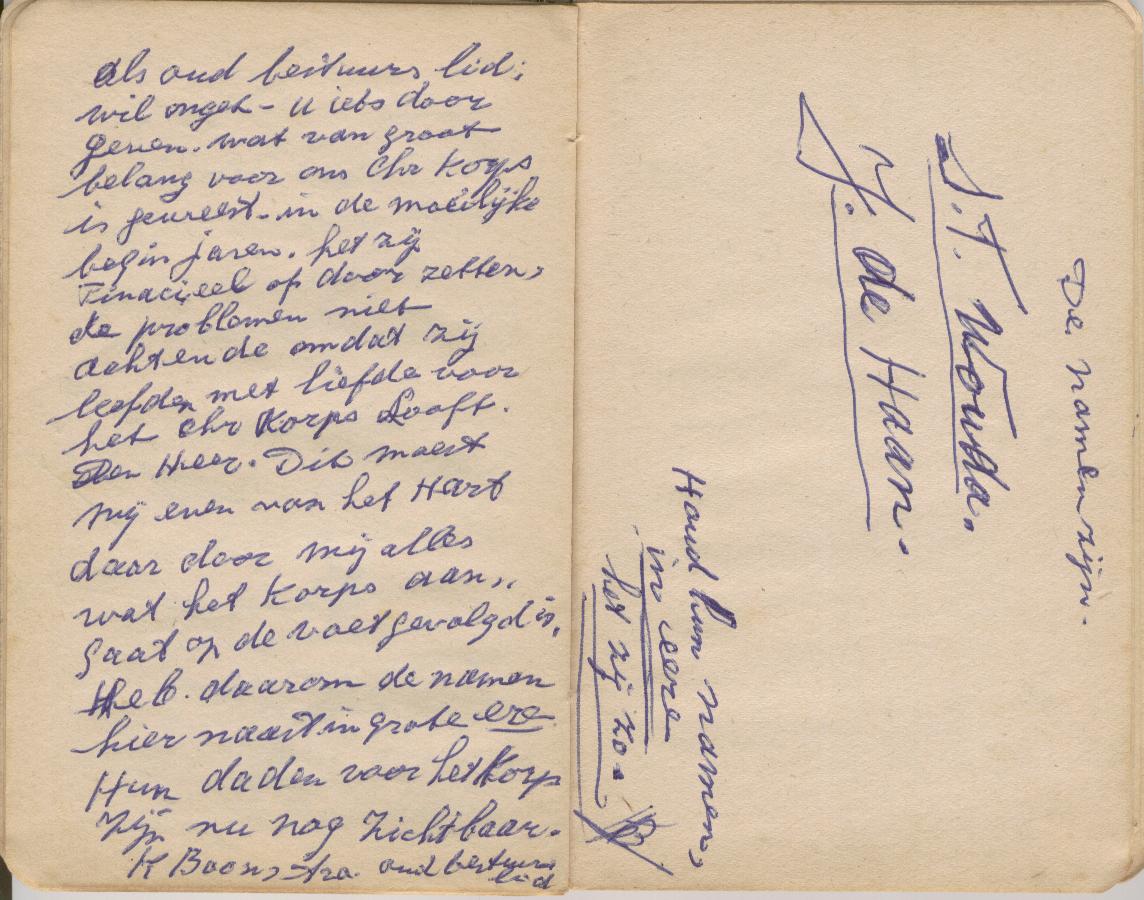 Als oud bestuurs lid;
wil ongeh - U iets door
geven. wat van groot
belang voor ons Chr Korps
is geweest - in de moeilijke
begin jaren. het zij
Finacieel op door zetten,
de problemen niet
achtende omdat zij
leefden met liefde voor
het chr Korps Looft.
Den Heer. Dit moest
mij even van het Hart
daar door mij alles
wat het Korps aan,,
gaat op de voet gevolgd is.
Heb. daarom de namen
hier naast in grote ere
Hun daden voor het Korps
zijn nu nog zichtbaar.
K Boonstra oud bestuurs
lid
De namen zijn.
S.T. Wouda.
J. de Haan.
Houd hun namen,
in eeren
het zij zo.